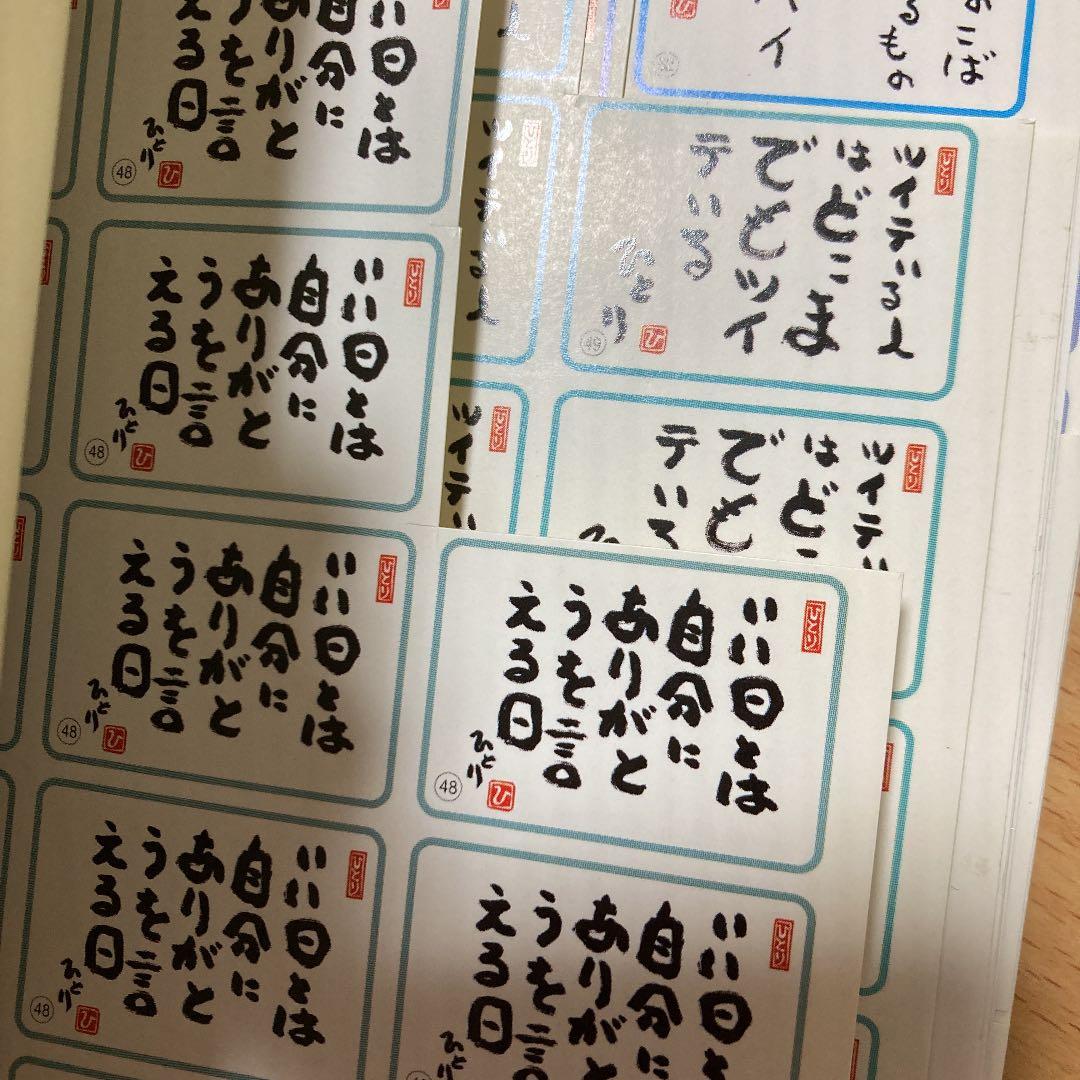 い日とは
自分に
ありがと
うを言
える日
ひとり
48
ひ
ひとり
いい日とは
自分に
ありがと
うを言
える日
ひとり
48
ひ
ひとり
いい日とは
自分に
ありがと
うを言
える日
ひとり
48
ひ
ひとり
いい日とは
自分に
ありがと
うを言
える日
ひとり
48
ひ
こば
るもの
イ
ひとり
ツイている人
はどこま
でもツイ
ている
ひとり
49
ひ
ひとり
ツイてい
はどこ
でも
ている
ひとり
ツイてい
ひとり
いい日とは
自分に
ありがと
うを言
える日
ひとり
48
ひ
ひとり
いい日と
自分に
ありがと
うを言
える日
ひとり